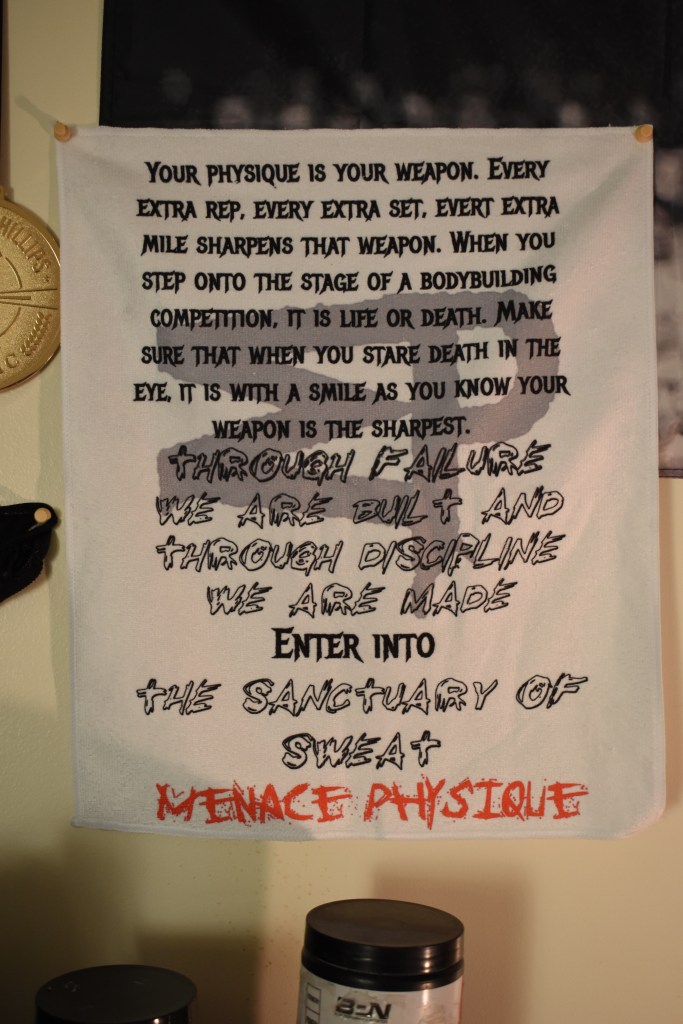 YOUR PHYSIQUE IS YOUR WEAPON. EVERY
EXTRA REP, EVERY EXTRA SET, EVERT EXTRA
MILE SHARPENS THAT WEAPON. WHEN YOU
STEP ONTO THE STAGE OF A BODYBUILDING
COMPETITION, IT IS LIFE OR DEATH. MAKE
SURE THAT WHEN YOU STARE DEATH IN THE
EYE, IT IS WITH A SMILE AS YOU KNOW YOUR
WEAPON IS THE SHARPEST.
THROUGH FAILURE
WE ARE BUILT AND
THROUGH DISCIPLINE
WE ARE MADE
ENTER INTO
THE SANCTUARY OF
SWEAT
MENACE PHYSIQUE
PHILLIPS
C
BPN